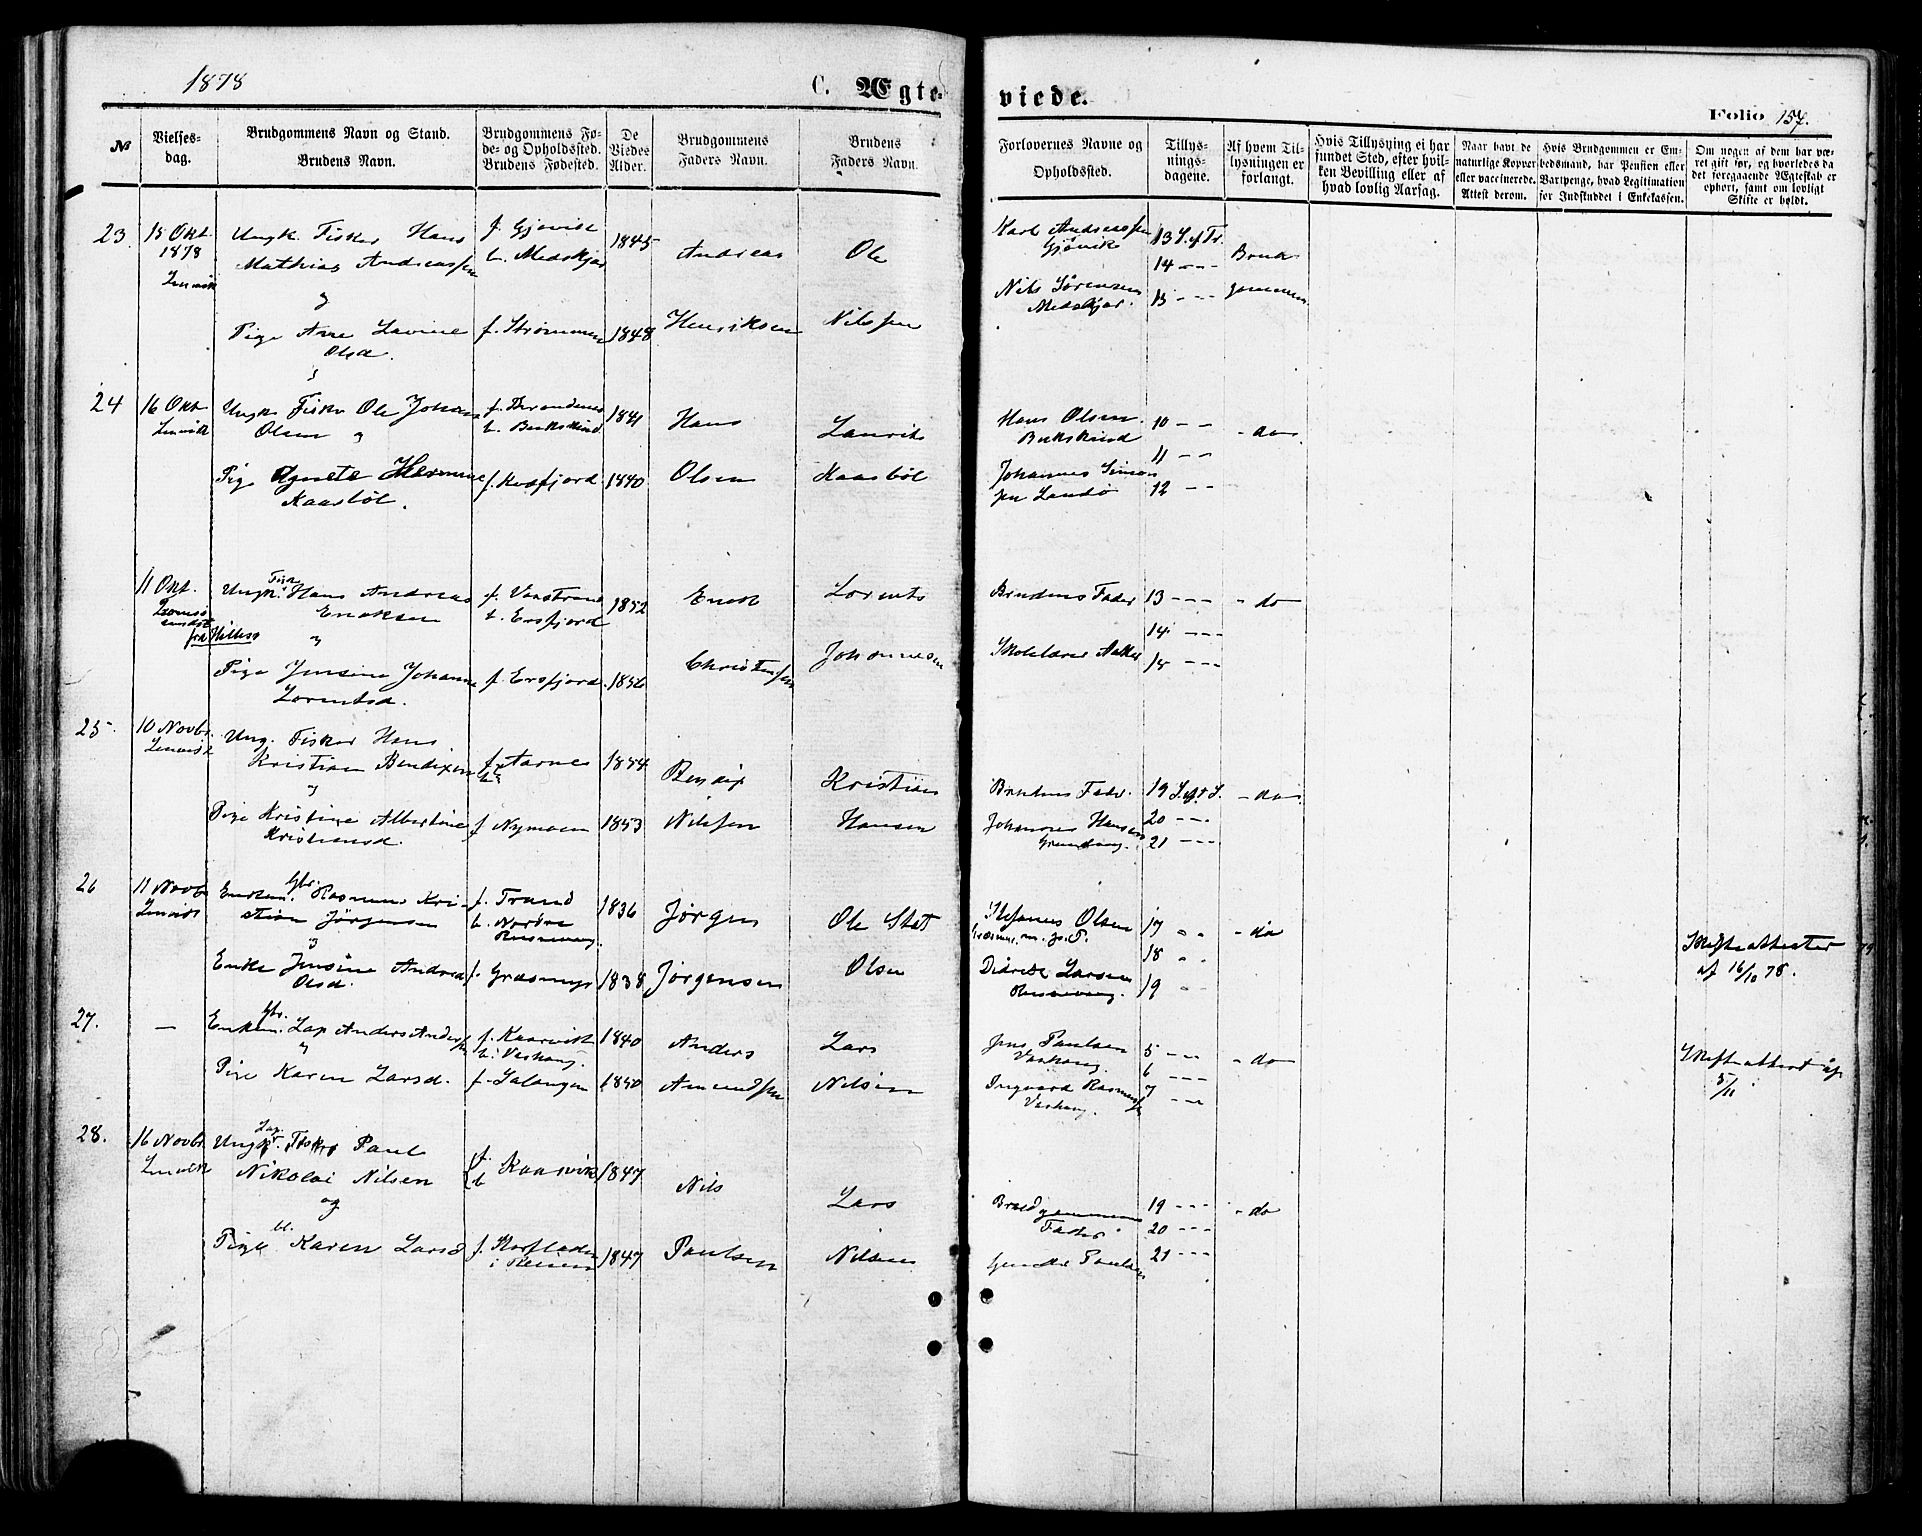 1878
C. Ægte-
viede.
Folio 157.
№
Vielses-
dag.
Brudgommens Navn og Stand.
Brudens Navn.
Brudgommens Fø-
de- og Opholdssted.
Brudens Fødested.
De
Viedes
Alder.
Brudgommens
Faders Navn.
Brudens
Faders Navn.
Forlovernes Navne og
Opholdssted.
Tillys-
nings-
dagene.
Af hvem Til-
lysningen er
forlangt.
Hvis Tillysning ei har
fundet Sted, efter hvil-
ken Bevilling eller af
hvad lovlig Aarsag.
Naar havt de
naturlige Kopper
eller vaccinerede.
Attest derom.
Hvis Brudgommen er Em-
bedsmand, har Pension eller
Vartpenge, hvad Legitimation
for Indskuddet i Enkekassen.
Om nogen af dem har væ-
ret gift før, og hvorledes da
det foregaaende Ægteskab er
ophørt, samt om lovligt
Skifte er holdt.
23
15 Okt.
1878
Lenvik
Ungk. Fisker Hans
Mathias Andreassen
og
Pige Ane Lavine
Olsd.
f. Gjøvik
b. Medskjær
f. Strømmen
1845
1848
Andreas
Henriksen
Ole
Nilssen
Karl Andreassen
Gjøvik
Nils Sørensen
Medskjær.
13 S. e. Tr.
14 - -
15 - -
Brud-
gommen
24
16 Okt.
Lenvik
Ungk. Fisker Ole Johan
Olsen og
Pige Agnete Hermine
Kaasbøl.
f. Trondenes
b. Bukskind
f. Kvæfjord
1841
1840
Hans
Olsen
Laurits
Kaasbøl
Hans Olsen
Bukskind
Johannes Simon-
sen Sandø
10 - -
11 - -
12 - -
- do -
11 Okt.
Tromsø-
sundet
fra Hillesø
Ungk. Fisk. Hans Andreas
Enoksen
og
Pige Jensine Johanne
Lorentsd.
b. Ersfjord
f. Ersfjord
1852
1856
Enok
Christensen
Lorents
Johannesen
Brudens Fader
Skolelærer
13 - - -
14 - - -
15 - - -
- do
25
10 Novbr.
Lenvik
Ung. Fisker Hans
Kristian Bendixen
og
Pige Kristine Albertine
Kristiansd.
f. b. Aarnes
f. Nymoen
1854
1853
Bendix
Nilssen
Kristian
Hansen
Brudens Fader.
Johannes Hansen
Grundvaag.
19 S. e. T.
20 - -
21 - - -
- do -
26
11 Novbr.
Lenvik
Enkem. Gbr. Rasmus Kri-
stian Jørgensen
og
Enke Jensine Andrea
Olsd.
f. Trand
b. Nordre
Russevaag.
f. Græsmyr
1836
1838
Jørgen
Jørgensen
Ole Stat
Olsen
Stefanus Olsen
Græsmyr
Didrik Larsen
Russevaag.
17 - -
18 - -
19 - -
- do
Skifteattester
af 16/10 78.
27.
—
Enkem. Gbr. Lap Anders Anders-
sen
og
Pige Karen Larsd.
f. Kaarvik
b. Vashaug
f. Salangen
1840
1850
Anders
Amundsen
Lars
Nilsen
Jens Paulsen
Vashaug.
Ingvard Rasmussen
Vashaug.
5 - -
6 - - -
7 - -
- do -
Skifteattest af
5/11
28.
16 Novbr.
Lenvik
Ungk. Lap. Fisker Paul
Nikolai Nilsen
og
Pige Karen Larsd
f. b. Kaarvik
i Reisen
1847
1847
Nils
Paulsen
Lars
Nilsen
Brudgommens
Fader
Paulsen
19 - - -
20 - - -
21 - - -
- do